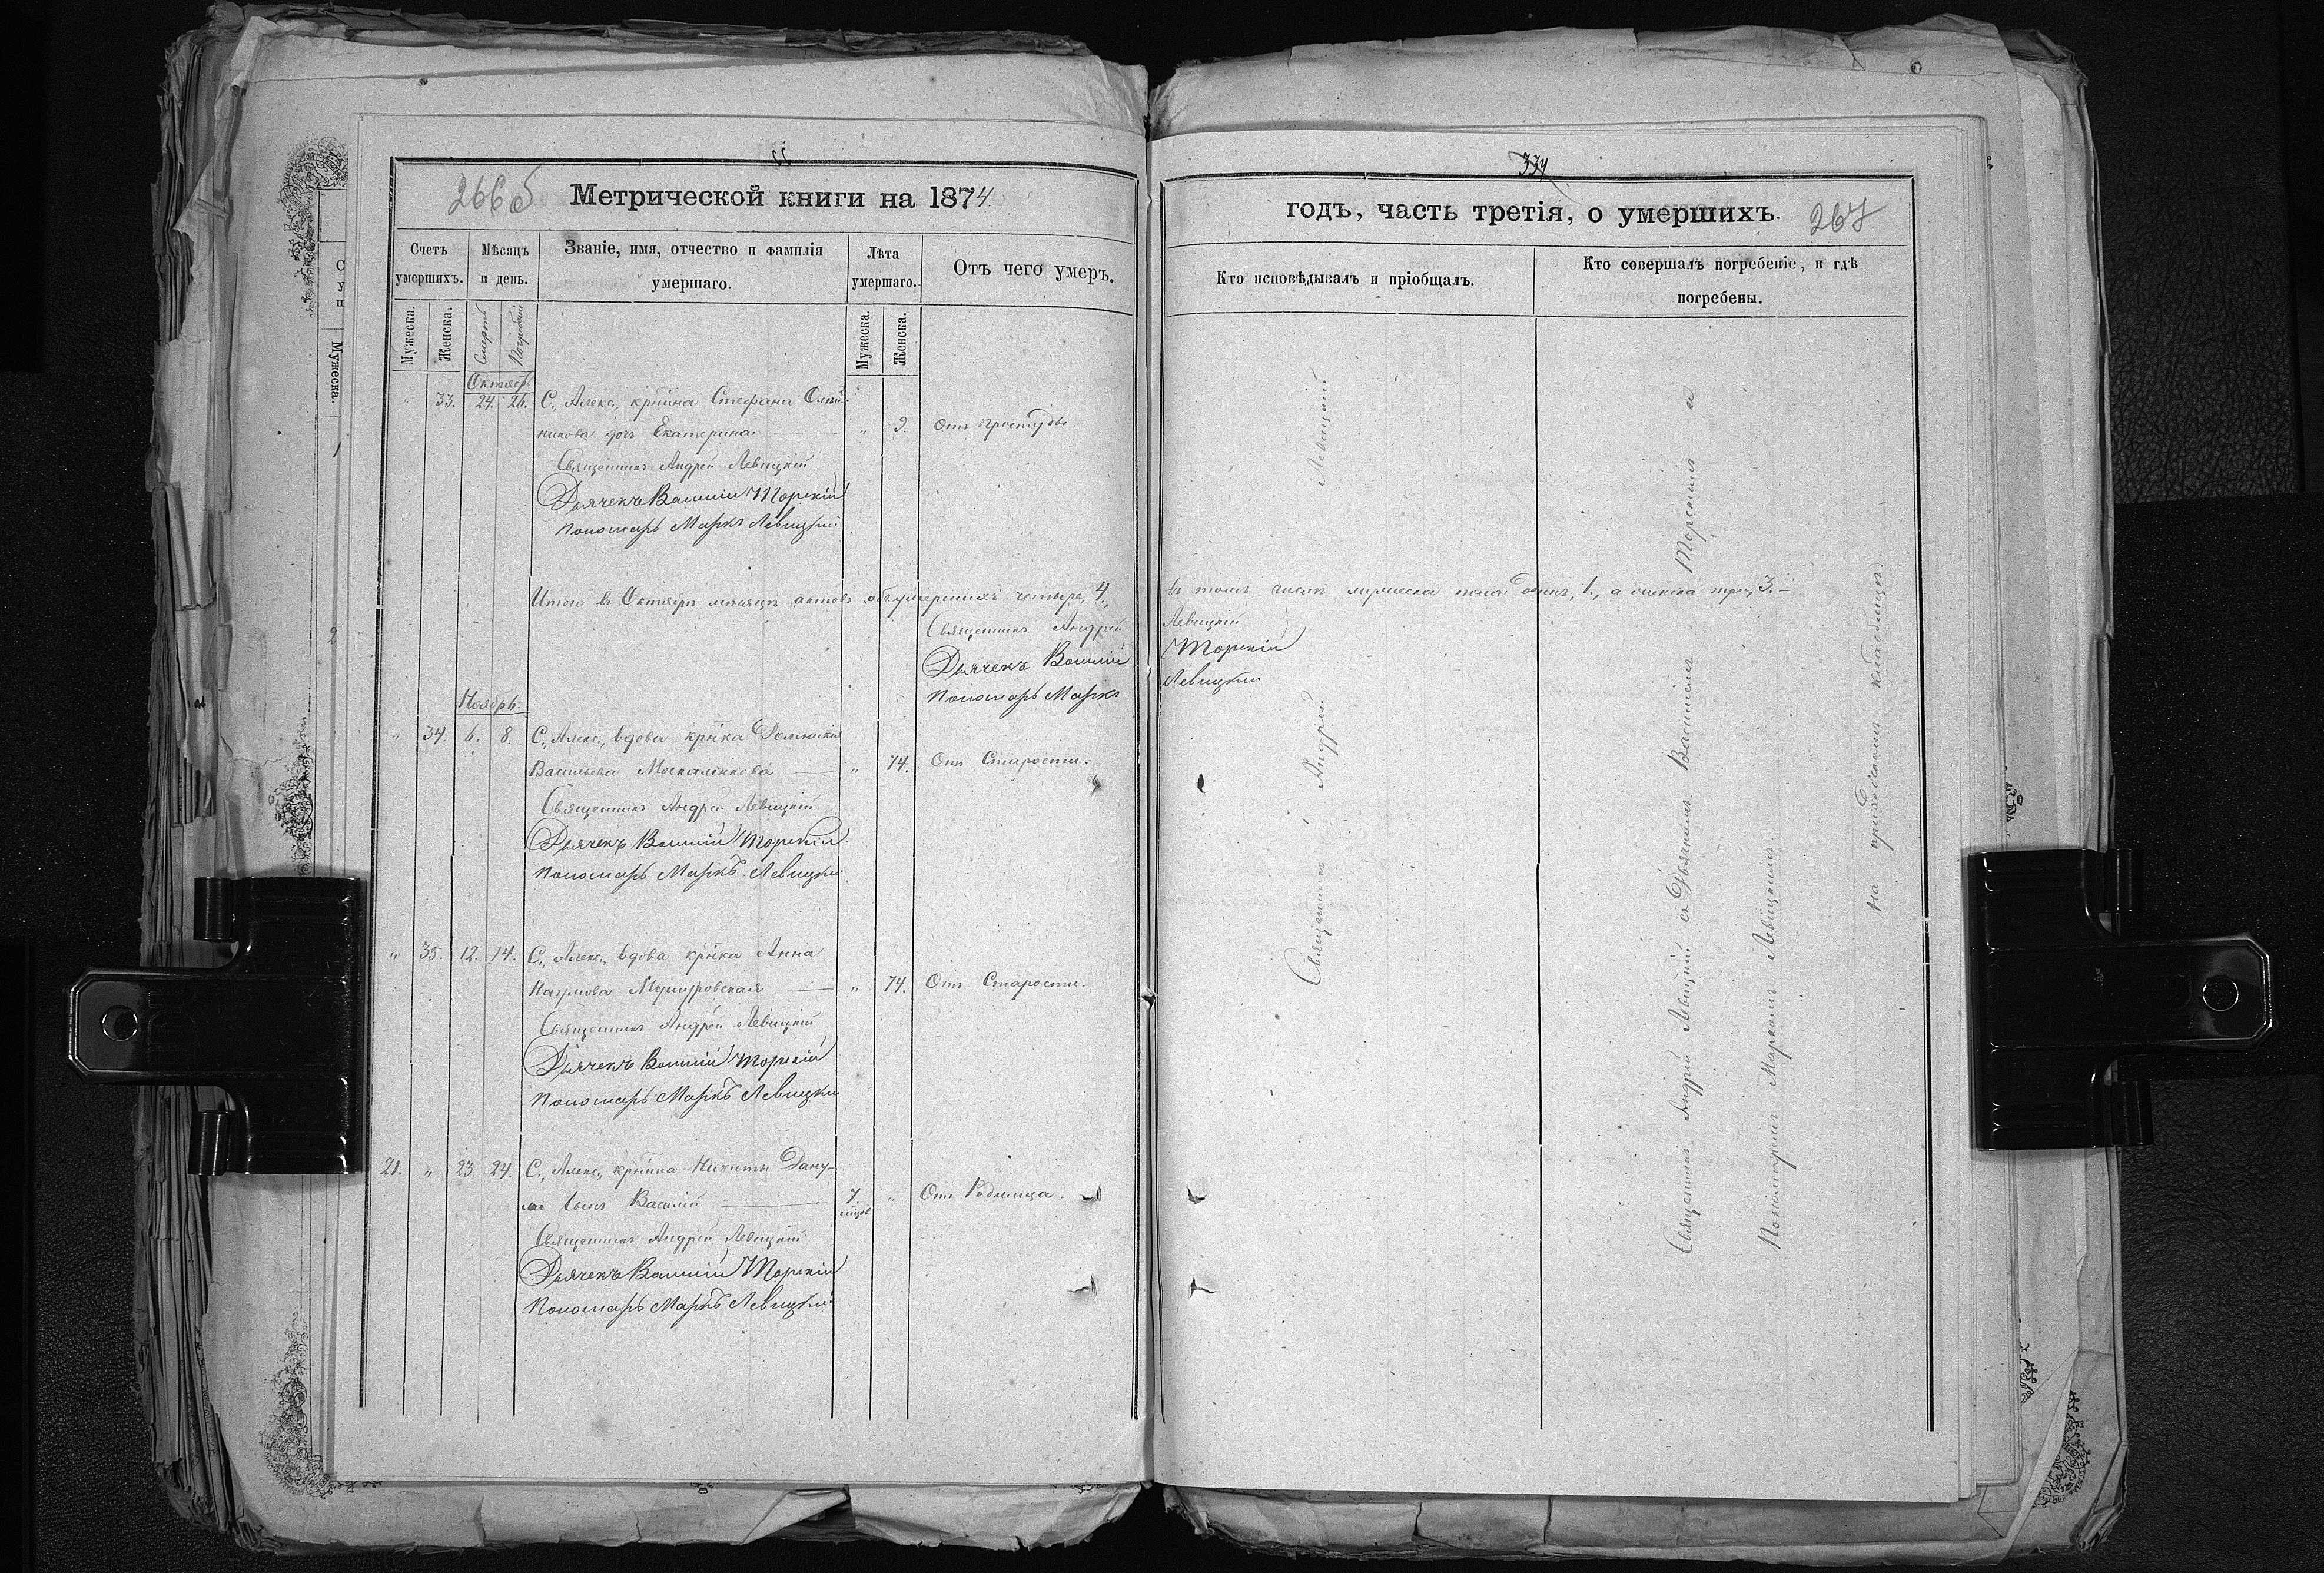 266 об
Метрической книги на 1874
Счетъ умершихъ.
Мѣсяцъ и день.
Званіе, имя, отчество и фамилія умершаго.
Лѣта умершаго.
Отъ чего умеръ.
Мужеска.
Женска.
Смерти
Погребенія
Мужеска.
Женска.
Октябрь
" 33. 24. 26. С., Алекс., крнина Стефана Олей-
никова дочь Екатерина — " 9. Отъ простуды.
Священникъ Андрей Левицкій
Дьячекъ Василій Торскій
Пономарь Маркъ Левицкій
Итого въ Октябрѣ мѣсяцѣ актовъ объ умершихъ четыре, 4.,
Священникъ Андрей
Дьячекъ Василій
Пономарь Маркъ
Ноябрь.
" 34. 6. 8. С., Алекс., вдова крнка Домникія
Васильева Москаленкова — " 74. Отъ Старости.
Священникъ Андрей Левицкій
Дьячекъ Василій Торскій
Пономарь Маркъ Левицкій
" 35. 12. 14. С., Алекс., вдова крнка Анна
Наумова — " 74. Отъ Старости.
Священникъ Андрей Левицкій
Дьячекъ Василій Торскій
Пономарь Маркъ Левицкій
21. " 23. 24. С., Алекс., крнина Никиты
сынъ Василій — 7. " Отъ Родимца.
Священникъ Андрей Левицкій
Дьячекъ Василій Торскій
Пономарь Маркъ Левицкій
334
годъ, часть третія, о умершихъ.
267
Кто исповѣдывалъ и пріобщалъ.
Кто совершалъ погребеніе, и гдѣ
погребены.
въ томъ числѣ мужеска пола одинъ, 1., а женска три, 3. —
Левицкій
Торскій
Левицкій
Священникъ Андрей Левицкій
Священникъ Андрей Левицкій съ Дьячкомъ Василіемъ Торскимъ и
Пономаремъ Маркомъ Левицкимъ.
на приходскомъ кладбищѣ.